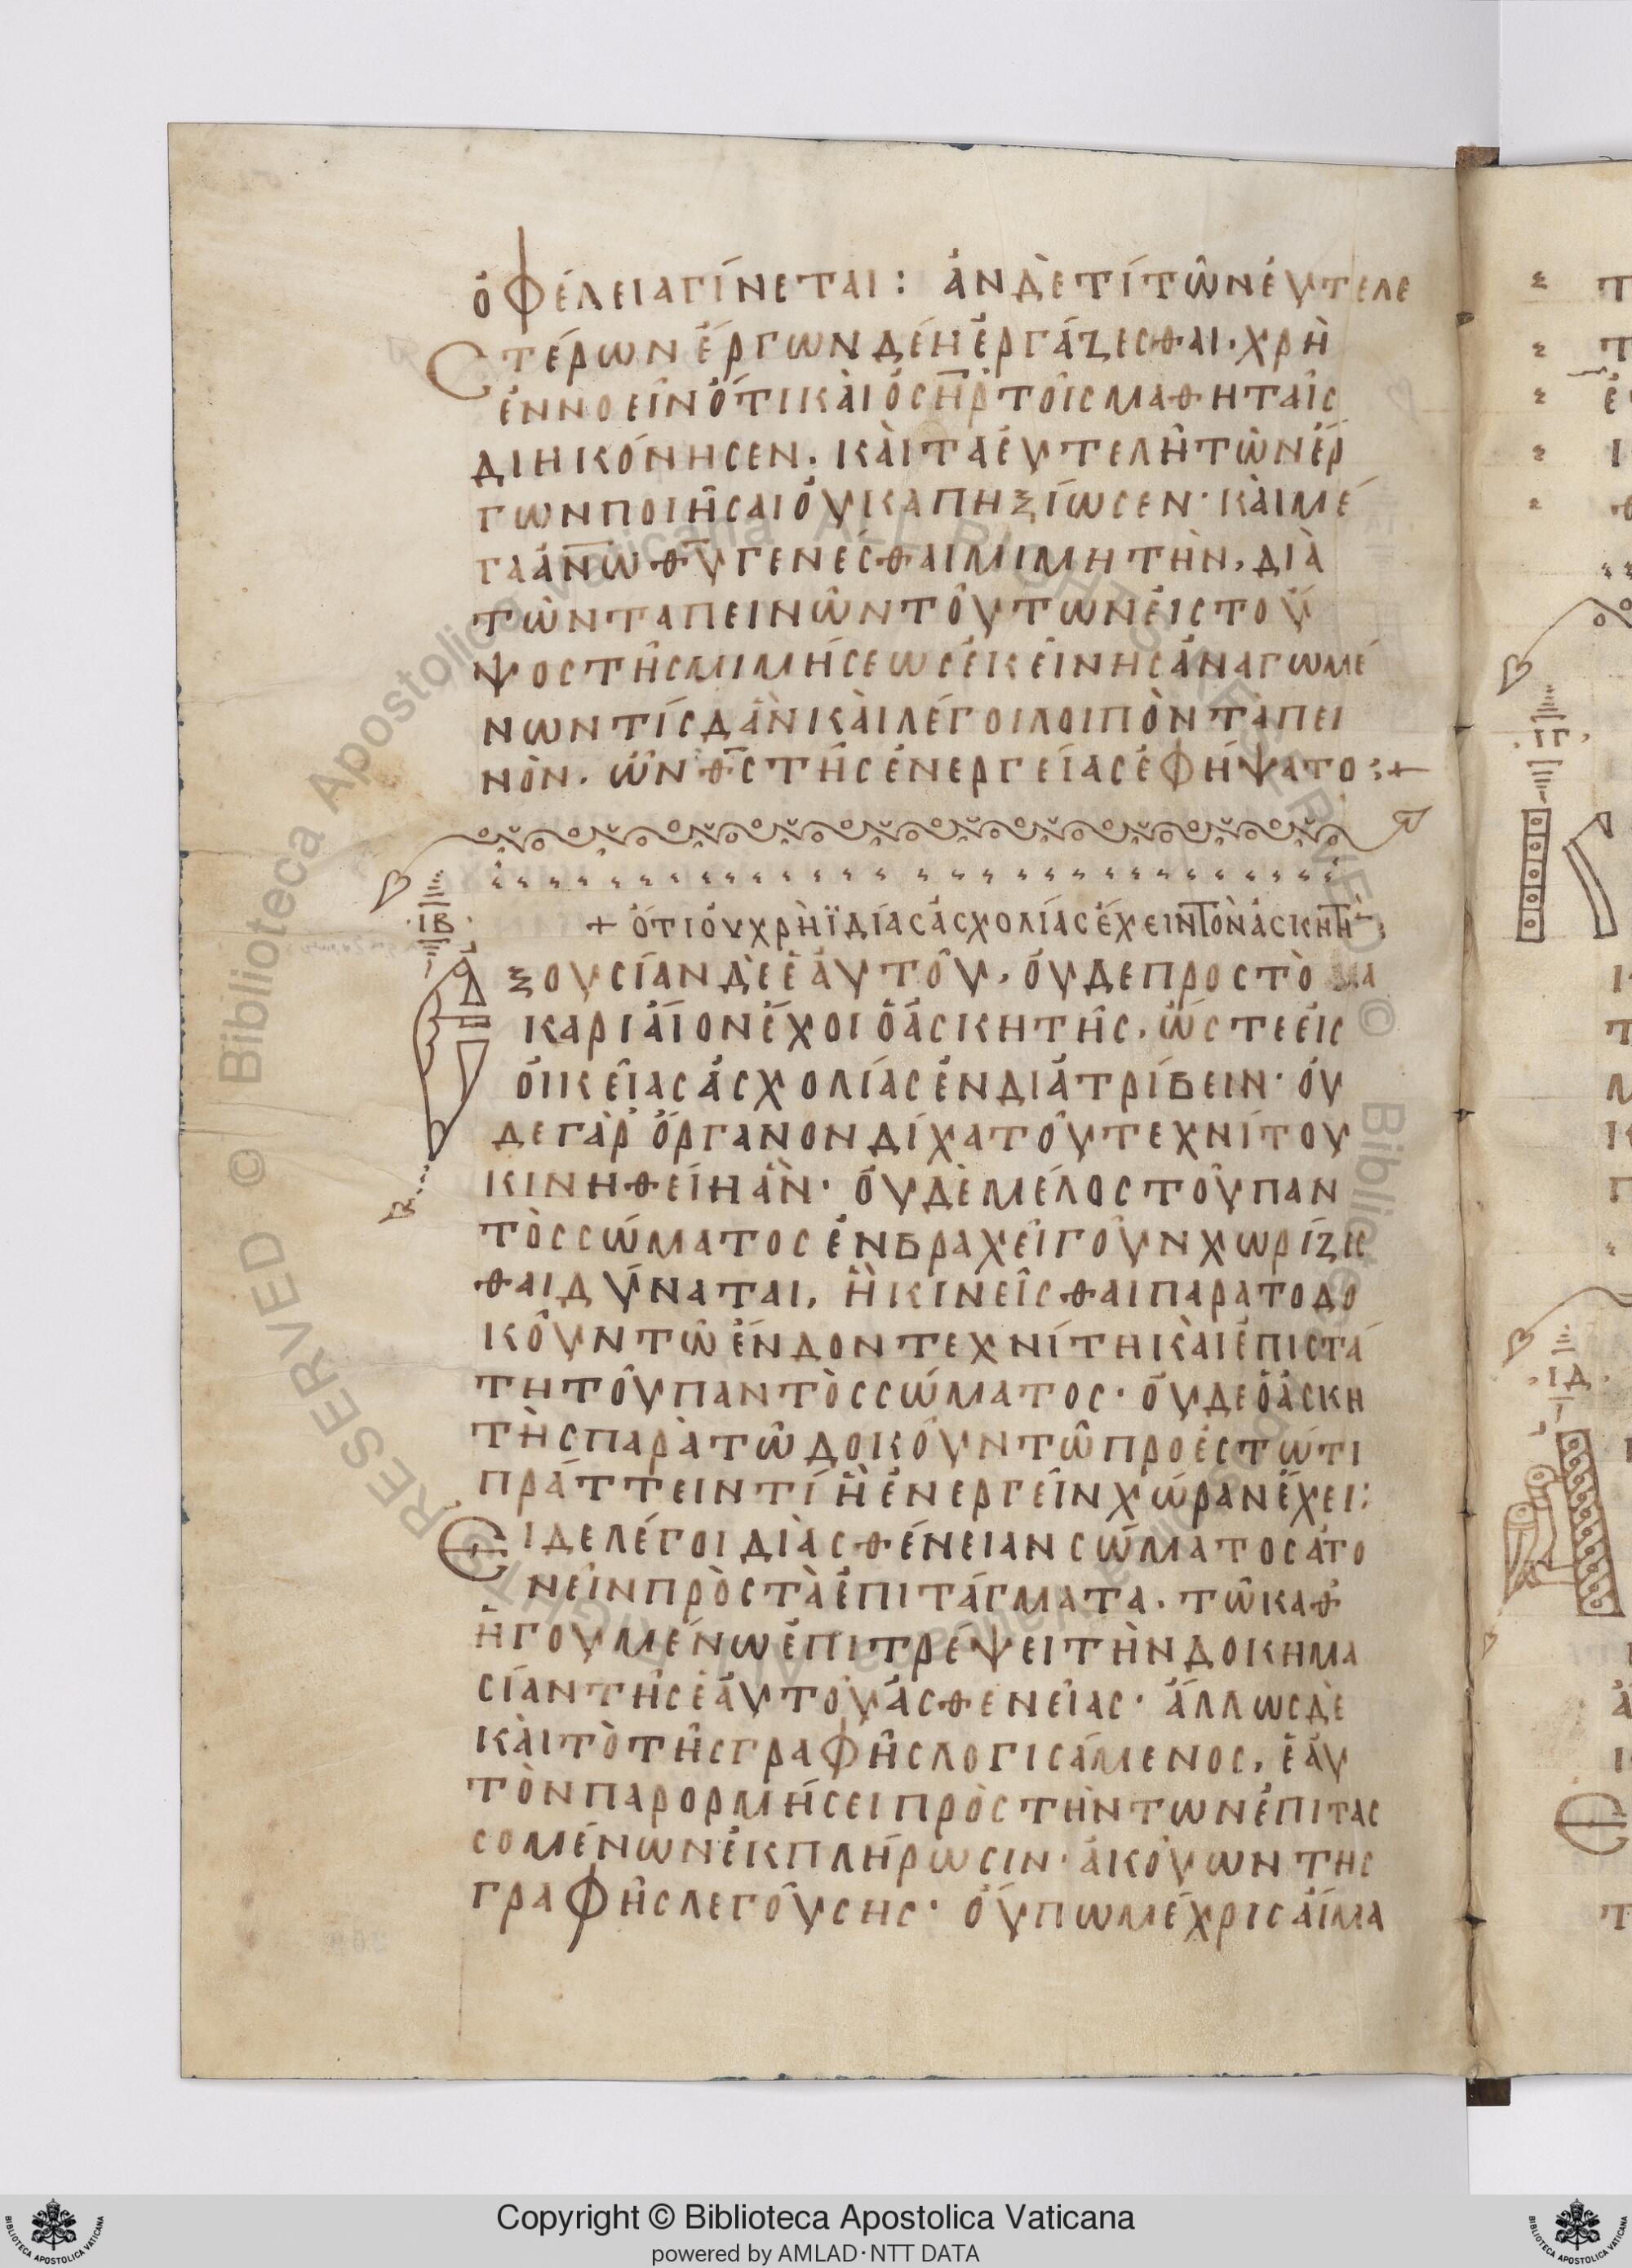 ὀφέλειαγίνεται: ἀνδὲτίτῶνἐυτελε
Cτέρωνἔργωνδέηἐργάζεσθαι·χρὴ
ἐννοεῖνὅτικὰιὁσ̅η̅ρ̅τοῖσμαθηταῖσ
διηκόνησεν. κὰιταἐυτελῆτῶνἔρ
γωνποιῆσαιόυκαπηξίωσεν· κὰιμέ
γαἀν̅ω̅θ̅υ̅γενέσθαιμιμητὴν, διὰ
τῶνταπεινῶντόυτωνἐιστοὔ
ψοστῆσμιμήσεωσἐκείνησἀναγωμέ
νωντίσδἂνκὰιλέγοιλοιπὸντὰπει
νὸν. ὧνθ̅σ̅τῆσἐνεργείασἐφήψατο:+
·ΙΒ·
+ ὅτιόυχρὴϊδίασἀσχολίασἔχειντὸνἀσκητὴ
ξουσίανδὲἑἀυτοῦ, ὀυδεπροστὸμα
καριἄῖονἔχοιὁἀσκητῆσ, ὥστεἐισ
ὀικείασἀσχολίασἐνδιἀτρίβειν· ὀυ
δεγὰρὄργανονδίχατοῦτεχνίτου
κινηθείηἂν· ὀυδὲμέλοστοῦπαν
τὸσσώματοσἐνβραχεῖγοῦνχωρίζεσ
θαιδύναται, ἢκινεῖσθαιπαρατοδο
κοῦντῶἔνδοντεχνίτηκὰιἐπιστά
τητοῦπαντὸσσώματοσ· ὀυδεὁἀσκη
τὴσπαρὰτῶδοκοῦντῶπροέστώτι
πράττειντίἢἐνεργεῖνχώρανἔχει:
Ειδελέγοιδιὰσθένειανσώματοσἀτο
νεῖνπρὸστὰἐπιτάγματα. τῶκαθ
ἡγουμένωἐπιτρέψειτὴνδοκημα
σίαντῆσἑἀυτοῦἀσθενείασ· ἄλλωσδὲ
κὰιτὸτῆσγραφῆσλογισάμενοσ, ἑἀυ
τὸνπαρορμήσειπρὸστὴντωνἐπιτασ
σομένωνἐκπλήρωσιν· ἀκούωντησ
γραφῆσλεγούσησ· ὀύπωμέχρισαἵμα
Copyright © Biblioteca Apostolica Vaticana
powered by AMLAD·NTT DATA